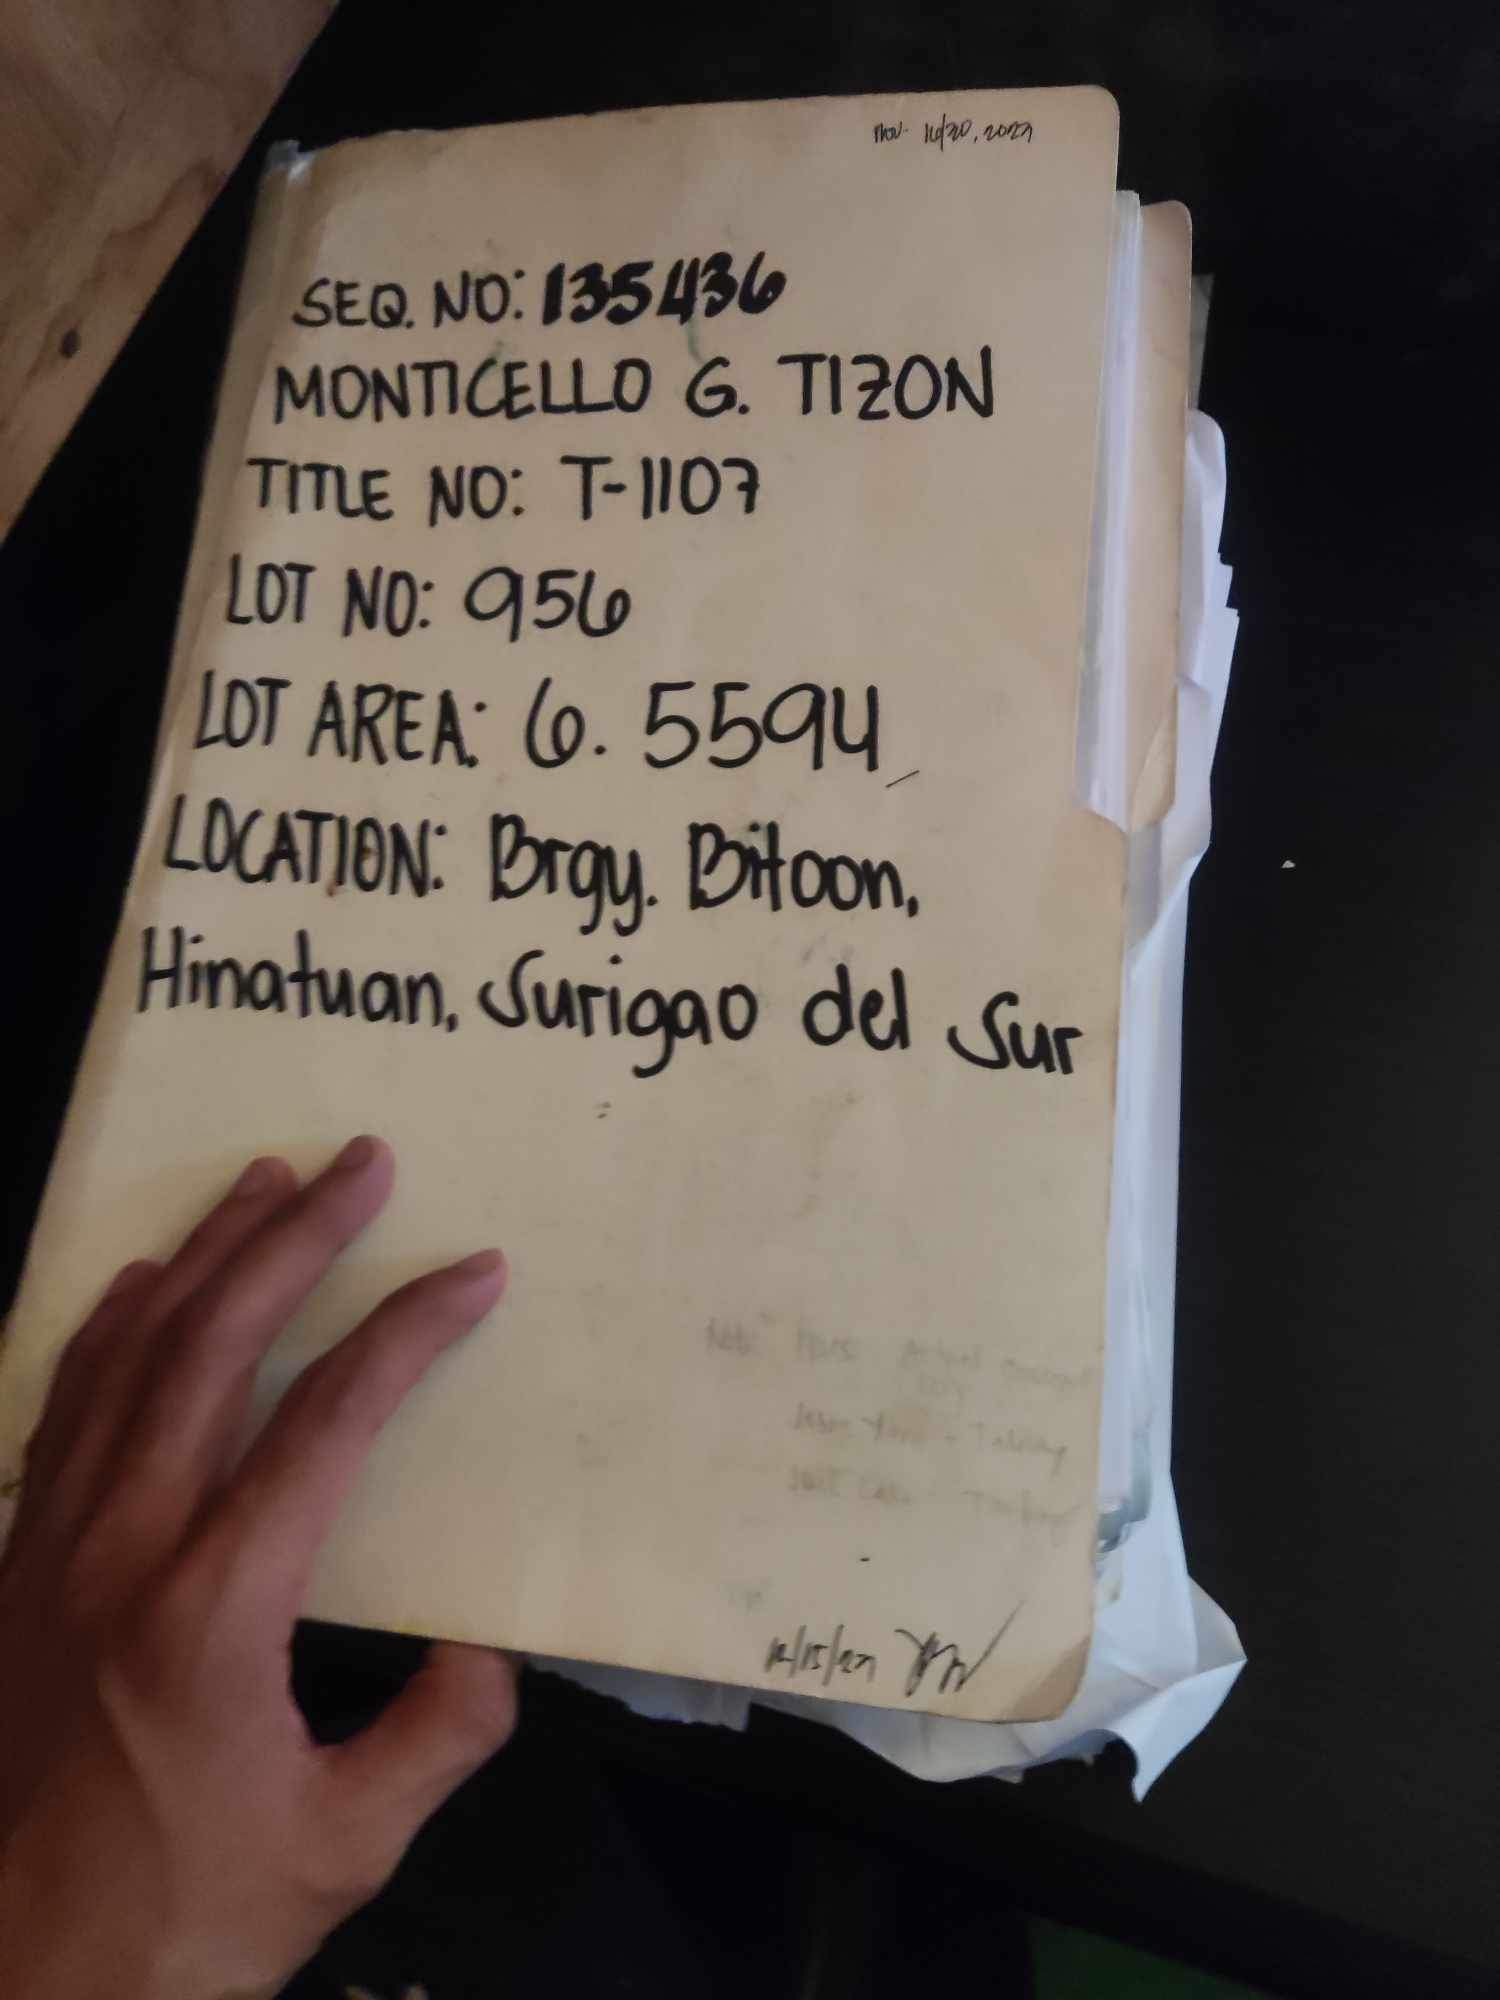 Nov. 16/20, 2022
SEQ. NO: 135436
MONTICELLO G. TIZON
TITLE NO: T-1107
LOT NO: 956
LOT AREA: 6.5594
LOCATION: Brgy. Bitoon,
Hinatuan, Surigao del Sur
Note
12/15/22